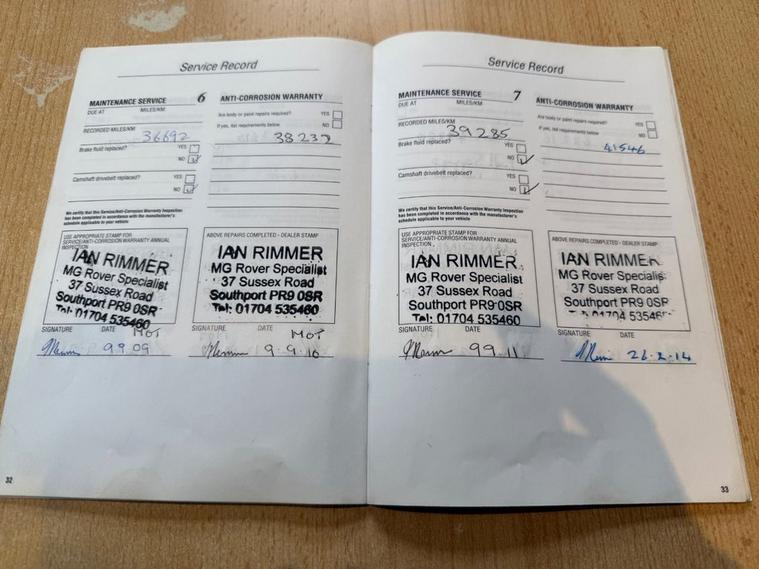 Service Record
MAINTENANCE SERVICE 6
DUE AT MILES/KM
RECORDED MILES/KM
36692
Brake fluid replaced? YES
NO
Camshaft drivebelt replaced? YES
NO
We certify that this Service/Anti-Corrosion Warranty Inspection
has been completed in accordance with the manufacturer's
schedule applicable to your vehicle
USE APPROPRIATE STAMP FOR
SERVICE/ANTI-CORROSION WARRANTY ANNUAL
INSPECTION
IAN RIMMER
MG Rover Specialist
37 Sussex Road
Southport PR9 0SR
Tel: 01704 535460
MOT
SIGNATURE DATE
99 09
32
ANTI-CORROSION WARRANTY
Are body or paint repairs required? YES
If yes, list requirements below NO
38237
ABOVE REPAIRS COMPLETED - DEALER STAMP
IAN RIMMER
MG Rover Specialist
37 Sussex Road
Southport PR9 0SR
Tel: 01704 535460
SIGNATURE DATE MOT
9-9-10
Service Record
MAINTENANCE SERVICE 7
DUE AT MILES/KM
RECORDED MILES/KM
39285
Brake fluid replaced? YES
NO
Camshaft drivebelt replaced? YES
NO
We certify that this Service/Anti-Corrosion Warranty Inspection
has been completed in accordance with the manufacturer's
schedule applicable to your vehicle
USE APPROPRIATE STAMP FOR
SERVICE/ANTI-CORROSION WARRANTY ANNUAL
INSPECTION
IAN RIMMER
MG Rover Specialist
37 Sussex Road
Southport PR9 0SR
Tel: 01704 535460
SIGNATURE DATE
99.11
ANTI-CORROSION WARRANTY
Are body or paint repairs required? YES
If yes, list requirements below NO
41546
ABOVE REPAIRS COMPLETED - DEALER STAMP
IAN RIMMER
MG Rover Specialist
37 Sussex Road
Southport PR9 0SR
SIGNATURE DATE
33